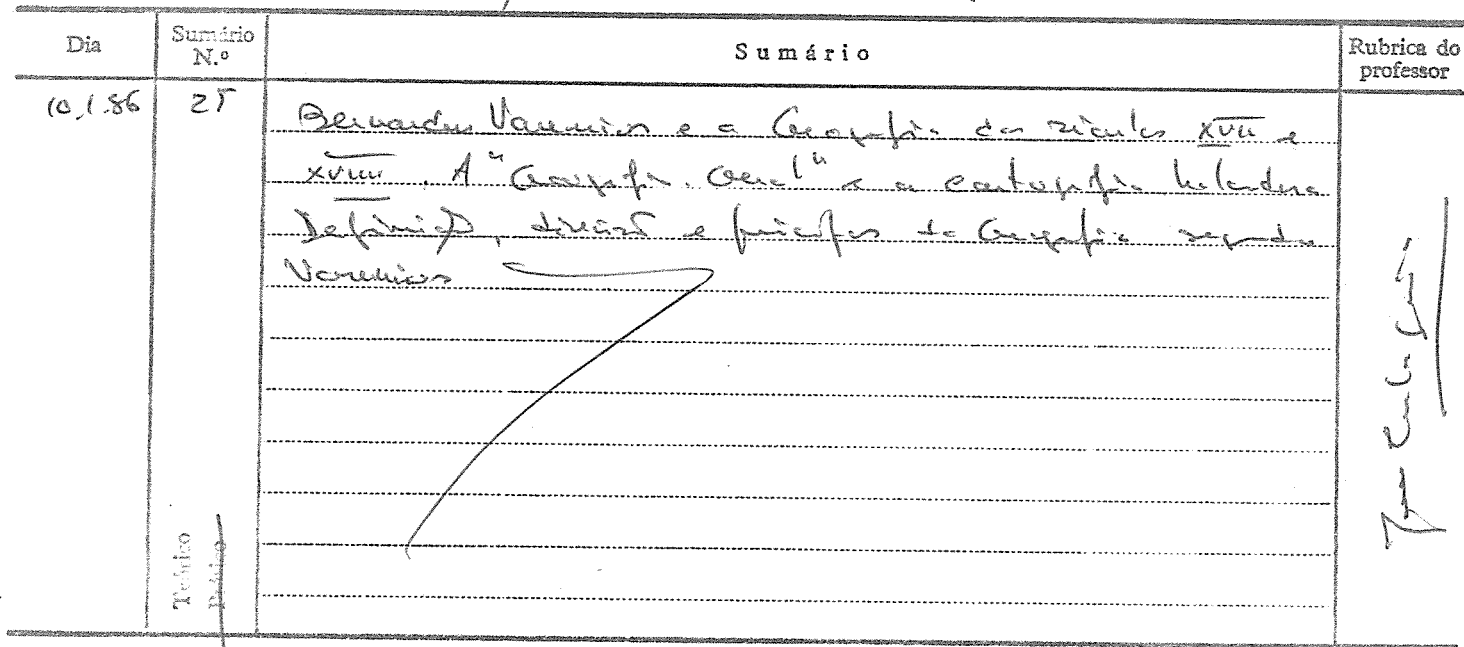 Dia
Sumário N.º
Sumário
Rubrica do professor
10.1.86
25
Bernardus Varenius e a Geografia dos séculos XVII e
XVIII. A "Geografia Geral" e a cartografia holandesa
Definição, divisão e princípios da Geografia segundo
Varenius
Teórico
Prático